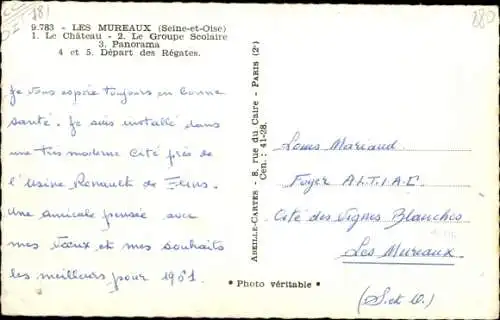 9.783 - LES MUREAUX (Seine-et-Oise)
1. Le Château - 2. Le Groupe Scolaire
3. Panorama
4 et 5. Départ des Régates.
Je vous espère toujours en bonne
santé. Je suis installé dans
une très moderne Cité près de
l'Usine Renault de Flins.
Une amicale pensée avec
mes vœux et mes souhaits
les meilleurs pour 1961
ABEILLE-CARTES - 8, rue du Caire - PARIS (2e)
Cen. : 41-28.
Louis Mariaud
Foyer A.L.T.I.A.C
Cité des Vignes Blanches
Les Mureaux
(S. et O.)
* Photo véritable *